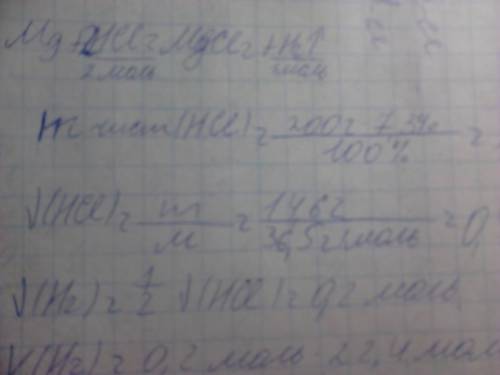 Mg + 2HCl = MgCl₂ + H₂↑
2 моль моль
m чист(HCl) = 200г 7,3% / 100% =
ν(HCl) = m / M = 14,6г / 36,5 г/моль = 0,
ν(H₂) = 1/2 ν(HCl) = 0,2 моль
V(H₂) = 0,2 моль 22,4 мол